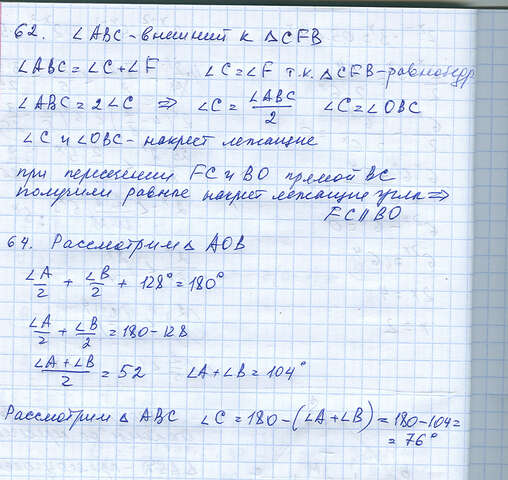 62. ∠ABC - внешний к ΔCFB
∠ABC = ∠C + ∠F ∠C = ∠F т.к. ΔCFB - равнобедр
∠ABC = 2∠C ⇒ ∠C = ∠ABC/2 ∠C = ∠OBC
∠C и ∠OBC - накрест лежащие
при пересечении FC и BO прямой BC
получили равные накрест лежащие углы ⇒
FC ∥ BO
64. Рассмотрим Δ AOB
∠A/2 + ∠B/2 + 128° = 180°
∠A/2 + ∠B/2 = 180 - 128
(∠A + ∠B)/2 = 52 ∠A + ∠B = 104°
Рассмотрим Δ ABC ∠C = 180 - (∠A + ∠B) = 180 - 104 =
= 76°